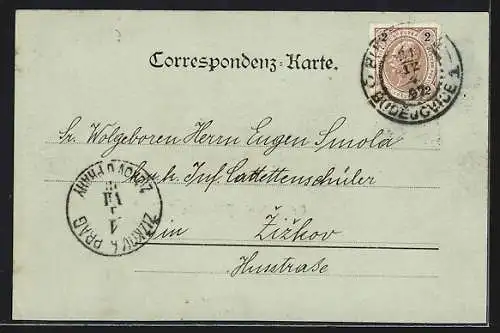 Correspondenz-Karte.
2
BUDĚJOVICE 1
97
Sr. Wolgeboren Herrn Eugen Smola
k. u. k. Inf. Cadettenschüler
in Žižkov
Husstraße
ŽIŽKOV U PRAHY
VII
1
ŽIŽKOV b. PRAG